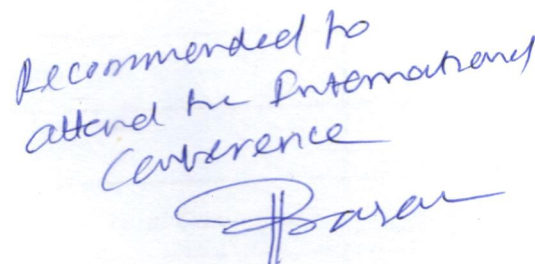 Recommended to
attend the International
Conference